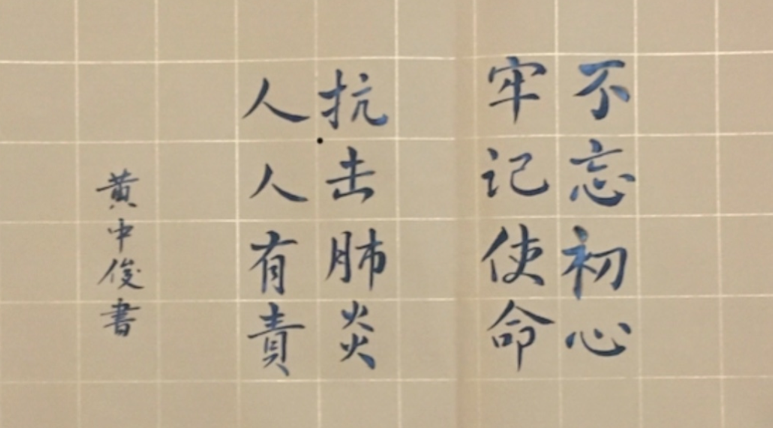 不忘初心
牢记使命
抗击肺炎
人人有責
黄中俊書